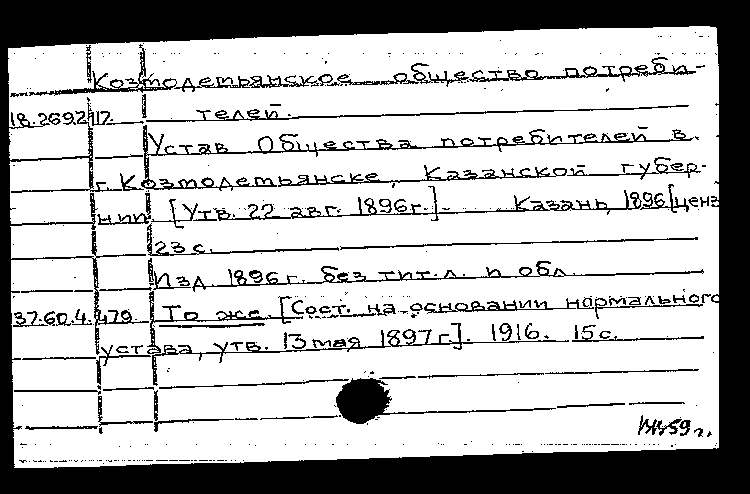 Козмодемьянское общество потреби-
18.269.2.117. телей.
Устав Общества потребителей в.
г. Козмодемьянске, Казанской губер-
нии. [Утв. 22 авг. 1896г.].- Казань, 1896 [ценз
23 с.
Изд. 1896 г. без тит. л. и обл.
37.60.4.479. То же. [Сост. на основании нормального
устава, утв. 13 мая 1897 г.]. 1916. 15 с.
59 г.